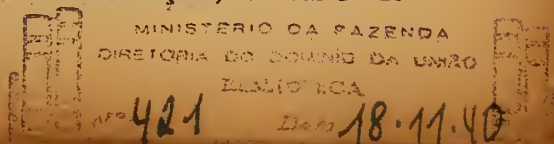 MINISTERIO DA FAZENDA
DIRETORIA DO DOMÍNIO DA UNIÃO
BIBLIOTECA
Nº 421 Data 18.11.40